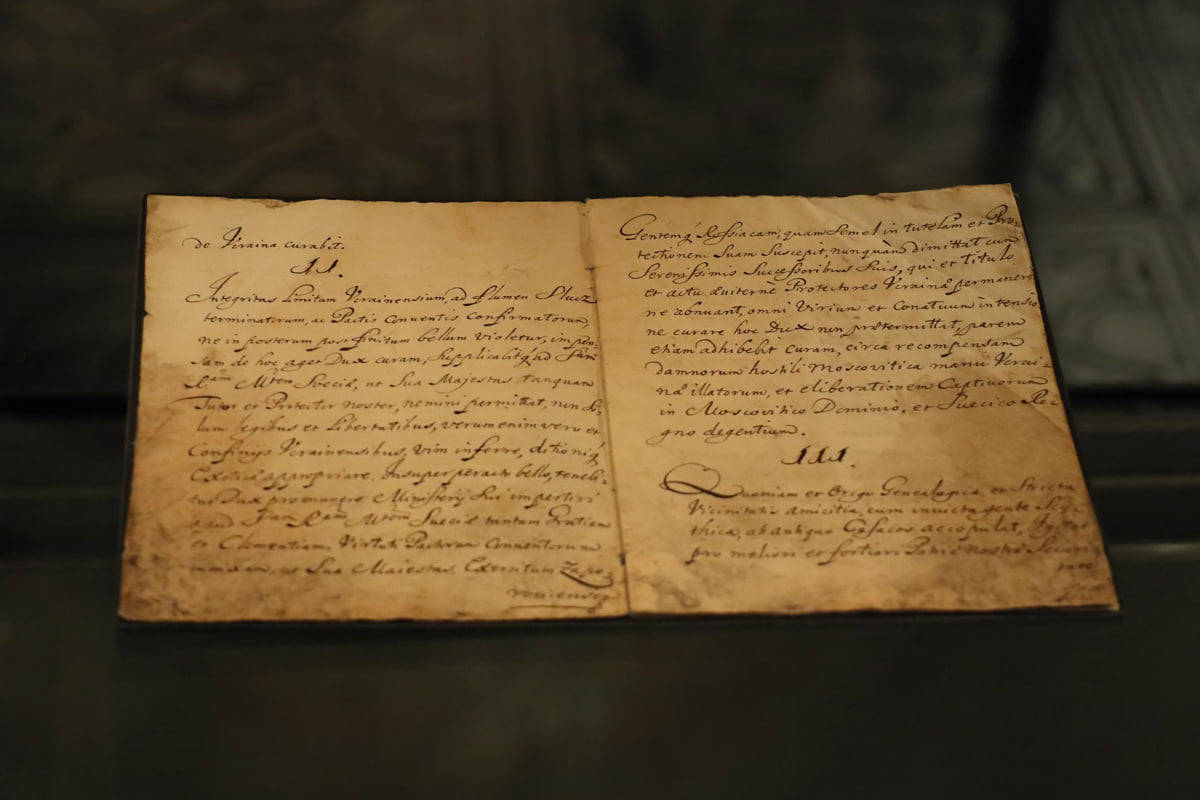 de Vcraina curabit.
II.
Integritas limitum Vcrainensium, ad flumen Slucz
terminatorum, ac Pactis Conventis Confirmatorum,
ne in posterum post finitum bellum violetur, impen-
sam de hoc aget Dux curam, Supplicabitq; ad Sam
Ram Mtem Sveciæ, ut Sua Majestas tanquam
Tutor et Protector noster, nemini permittat, non So-
lum legibus et Libertatibus, verum enim vero et
Confinÿs Vcrainensibus, vim inferre, ditioniq;
Exoticæ appropriare. Insuper peracto bello, tenebi-
tur Dux pro munere Ministerÿ Sui impertiri
apud Ram Mtem Sueciæ tantam Gratiam
et Clementiam, Virtuti Pactorum Conventorum
ut Sua Maiestas, Exercitum Zapo-
rovienseq;
Gentemq; Rossiacam, quam Semel in tutelam et Pro-
tectionem Suam Suscepit, nunquam dimittat cum
Serenissimis Successoribus Suis, qui et titulo
et actu æviternè Protectores Vcrainæ permanere
ne abnuant, omni Virium et Conatuum intensio-
ne curare hoc Dux non prætermittat, parem
etiam adhibebit curam, circa recompensam
damnorum hostili Moscovitica manu Vcrai-
næ illatorum, et eliberationem Captivorum
in Moscovitico Dominio, et Suecico Re-
gno degentium.
III.
Quoniam et Origo Genealogica, et Stricta
Vicinitatis amicitia, cum invicta gente Scy-
thica, ab antiquo Cosacos accopulat, Igitur
pro meliori et fortiori Patriæ Nostræ Securi-
tate